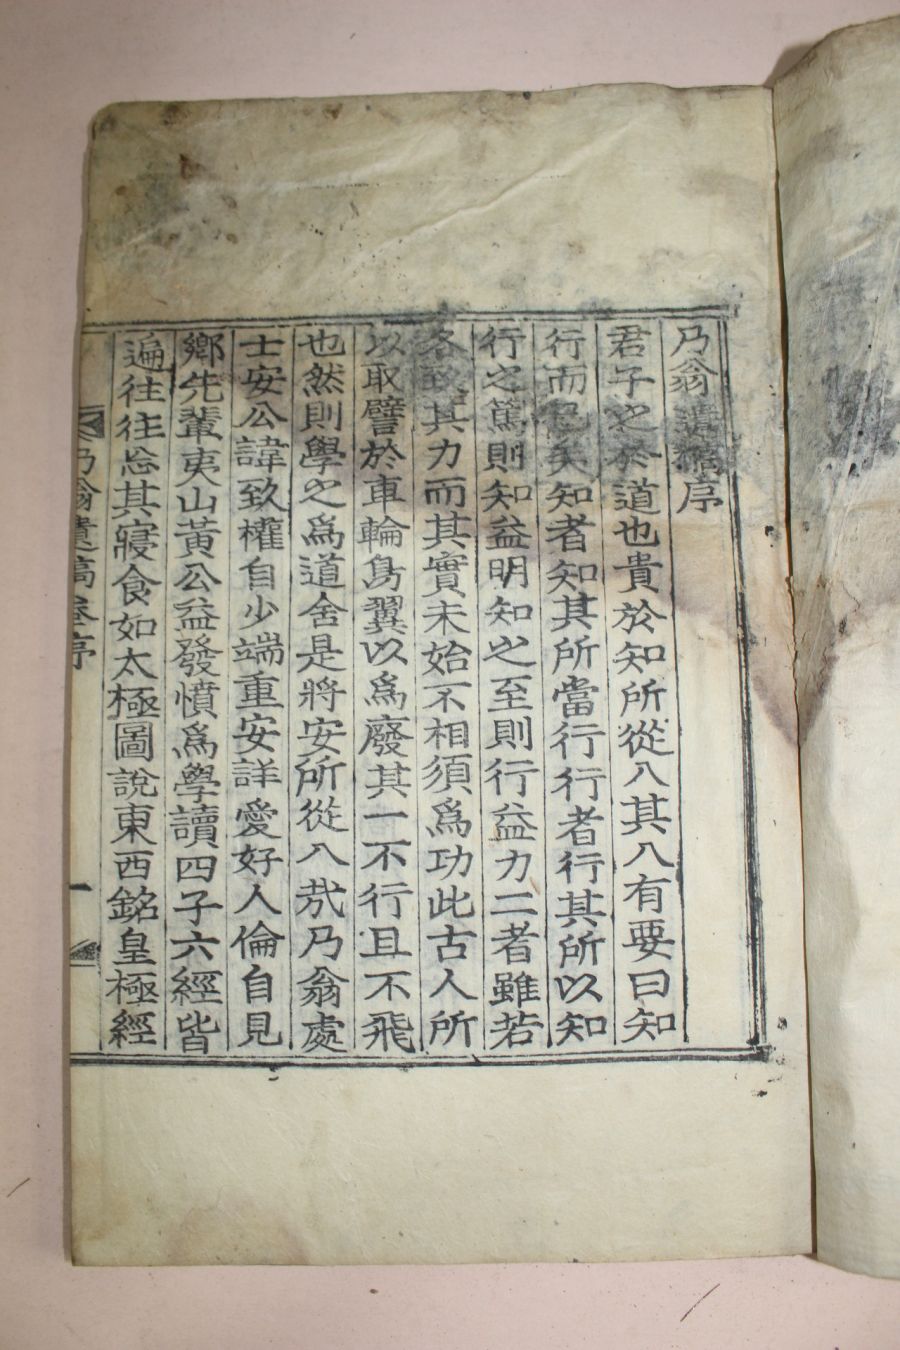 乃翁遺稿序
君子之於道也貴於知所從入其入有要曰知
行而已矣知者知其所當行行者行其所以知
行之篤則知益明知之至則行益力二者雖若
各致其力而其實未始不相須爲功此古人所
以取譬於車輪鳥翼以爲廢其一不行且不飛
也然則學之爲道舍是將安所從入㢤乃翁處
士安公諱致權自少端重安詳愛好人倫自見
鄉先輩夷山黃公益發憤爲學讀四子六經皆
遍往往忘其寢食如太極圖說東西銘皇極經
乃翁遺稿卷序
一